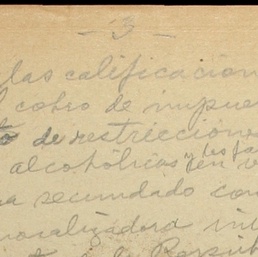 - 3 -
las calificacion
l cobro de impue
to de restriccione
alcohólicas en
a secundado con
moralizadora in